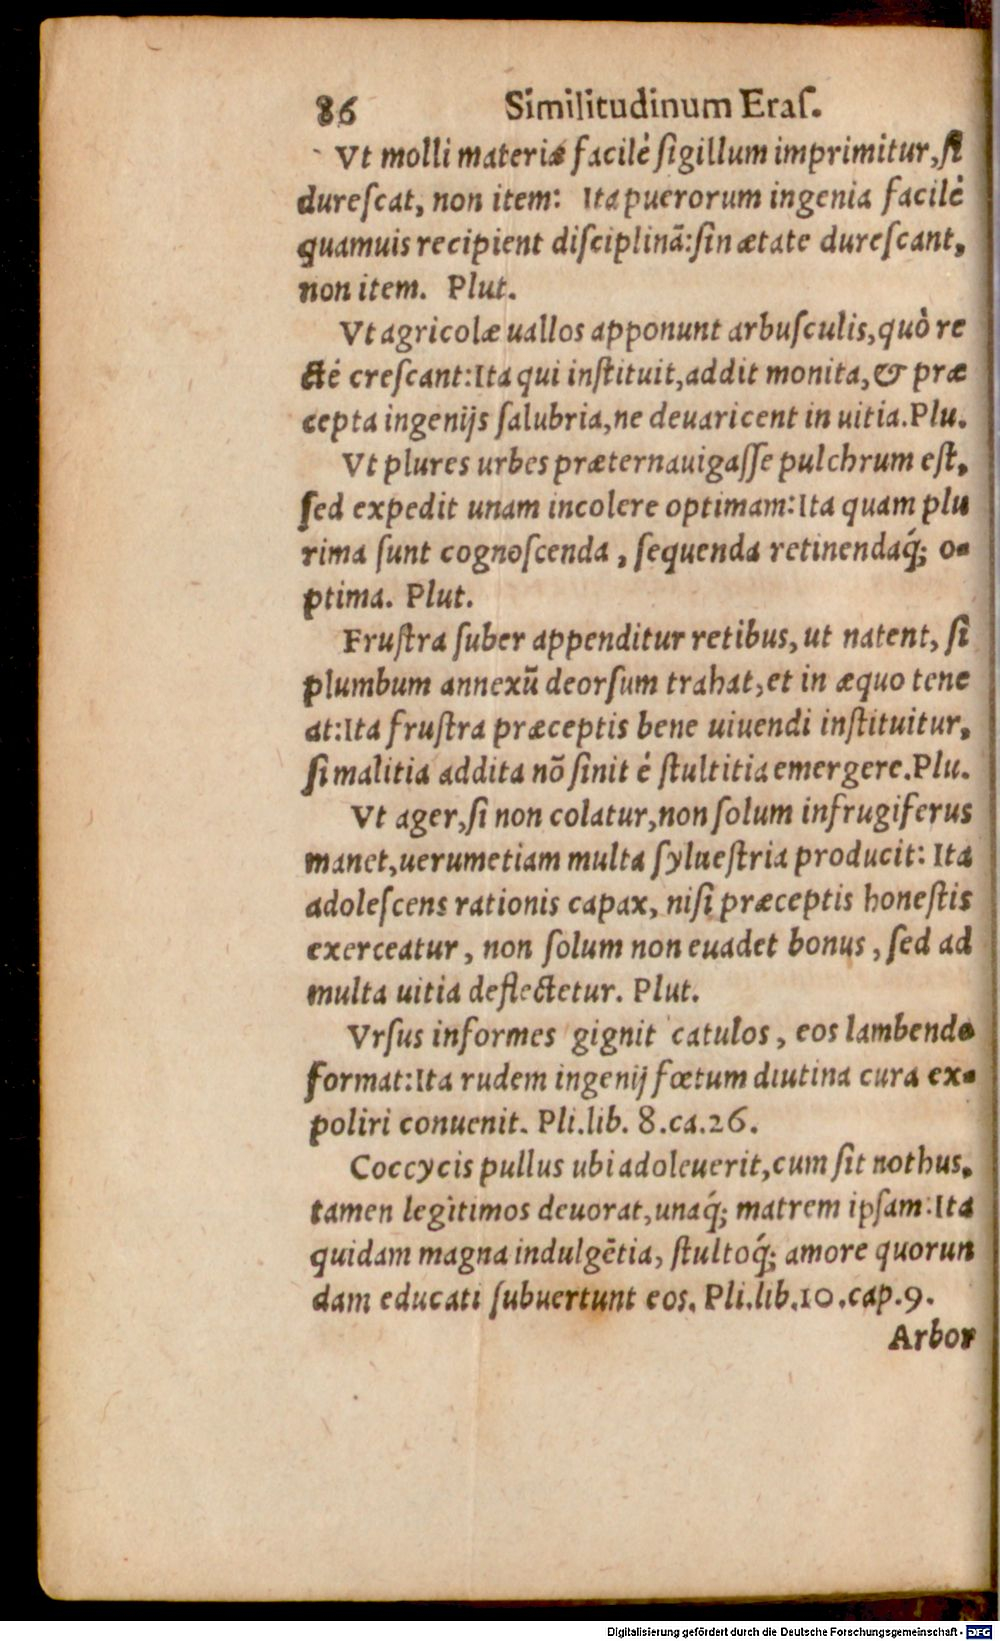 86 Similitudinum Eraſ.
Vt molli materiæ facilè ſigillum imprimitur, ſi
dureſcat, non item: Ita puerorum ingenia facilè
quamuis recipient diſciplinã: ſin ætate dureſcant,
non item. Plut.
Vt agricolæ uallos apponunt arbuſculis, quò re
ctè creſcant: Ita qui inſtituit, addit monita, & præ
cepta ingenijs ſalubria, ne deuaricent in uitia. Plu.
Vt plures urbes præternauigaſſe pulchrum eſt,
ſed expedit unam incolere optimam: Ita quam plu
rima ſunt cognoſcenda, ſequenda retinendaq́; o-
ptima. Plut.
Fruſtra ſuber appenditur retibus, ut natent, ſi
plumbum annexũ deorſum trahat, et in æquo tene
at: Ita fruſtra præceptis bene uiuendi inſtituitur,
ſi malitia addita nõ ſinit è ſtultitia emergere. Plu.
Vt ager, ſi non colatur, non ſolum infrugiferus
manet, uerumetiam multa ſylueſtria producit: Ita
adoleſcens rationis capax, niſi præceptis honeſtis
exerceatur, non ſolum non euadet bonus, ſed ad
multa uitia deflectetur. Plut.
Vrſus informes gignit catulos, eos lambendo
format: Ita rudem ingenij fœtum diutina cura ex-
poliri conuenit. Pli. lib. 8. ca. 26.
Coccycis pullus ubi adoleuerit, cum ſit nothus,
tamen legitimos deuorat, unaq́; matrem ipſam: Ita
quidam magna indulgẽtia, ſtultoq́; amore quorun
dam educati ſubuertunt eos. Pli. lib. 10. cap. 9.
Arbor
Digitalisierung gefördert durch die Deutsche Forschungsgemeinschaft - DFG